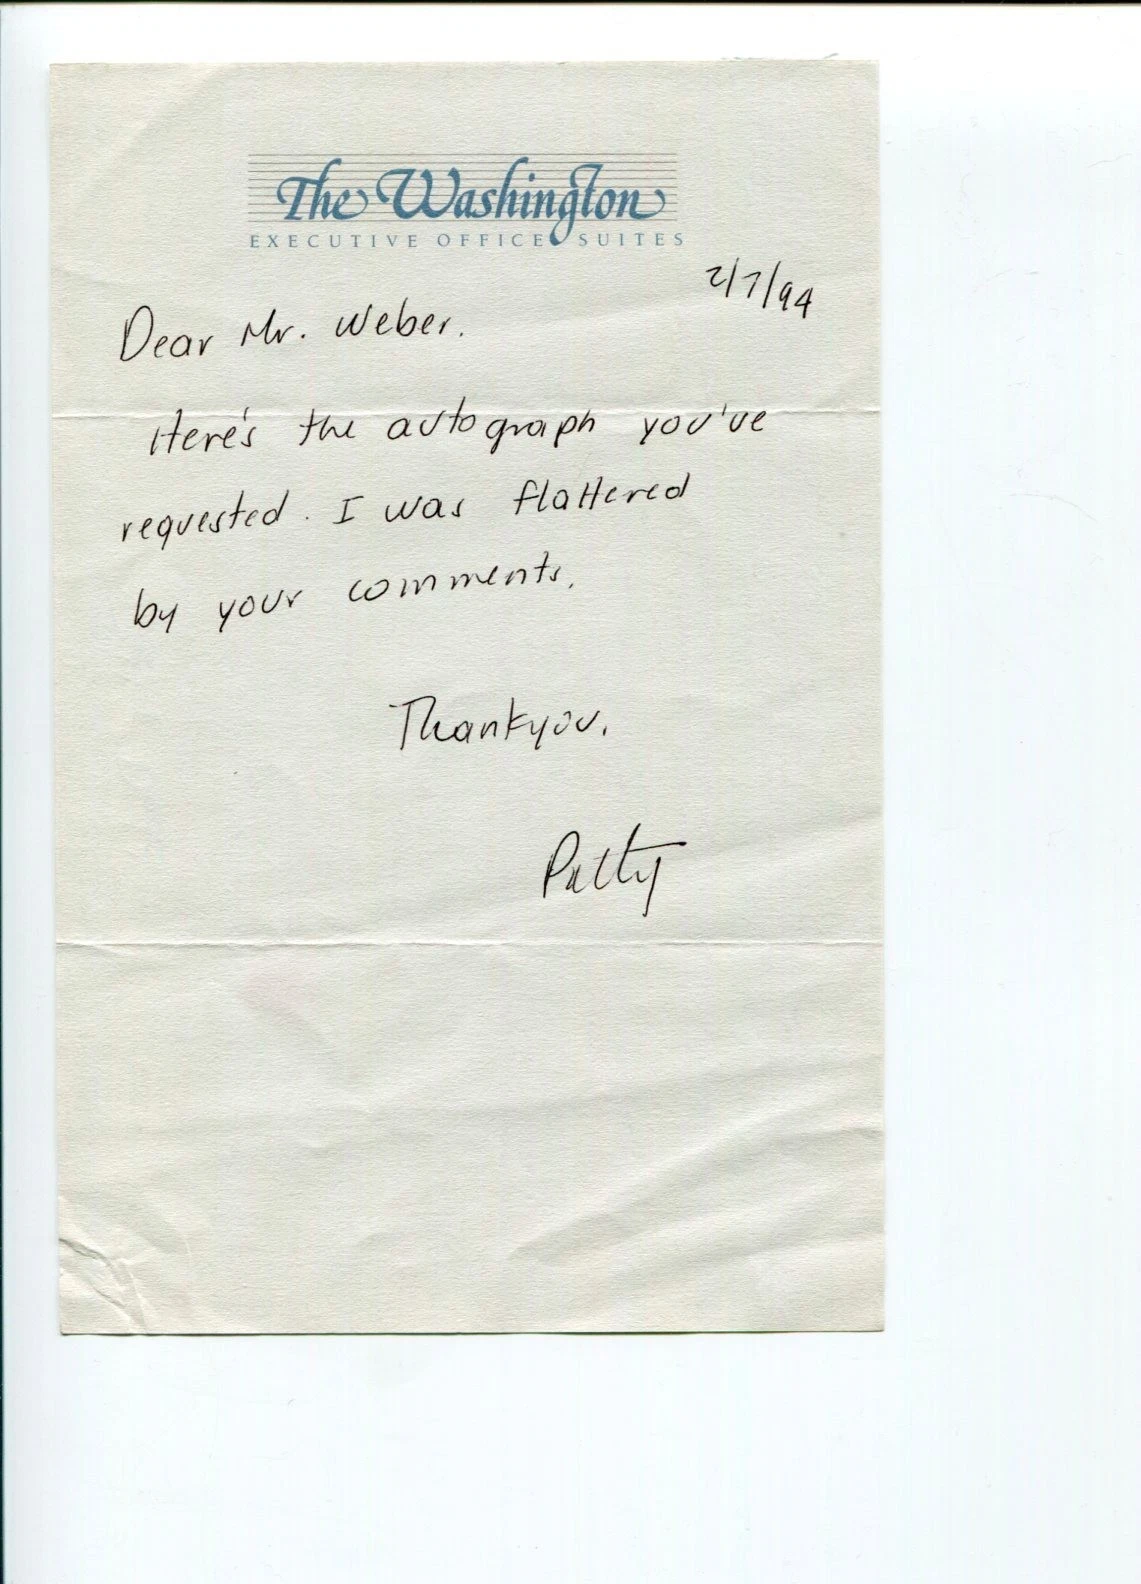 The Washington
EXECUTIVE OFFICE SUITES
2/7/94
Dear Mr. Weber.
Here's the autograph you've
requested. I was flattered
by your comments.
Thankyou.
Patty